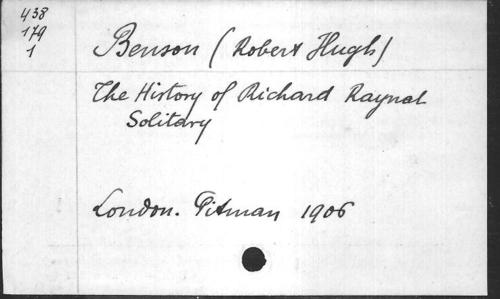 438
179
1
Benson (Robert Hugh)
The History of Richard Raynal
Solitary
London. Pitman 1906